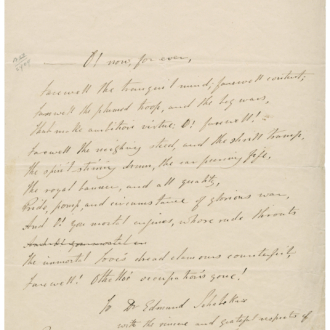 O! now, for ever,
Farewell the tranquil mind; farewell content;
Farewell the plumed troop, and the big wars,
That make ambition virtue; O! farewell!
Farewell the neighing steed, and the shrill trump,
The spirit stirring drum, the ear piercing fife,
The royal banner, and all quality,
Pride, pomp, and circumstance of glorious war,
And O! you mortal engines, whose rude throats
The immortal Jove's dread clamours counterfeit,
Farewell! Othello's occupation's gone!
To Dr Edward
with the sincere and grateful respects of